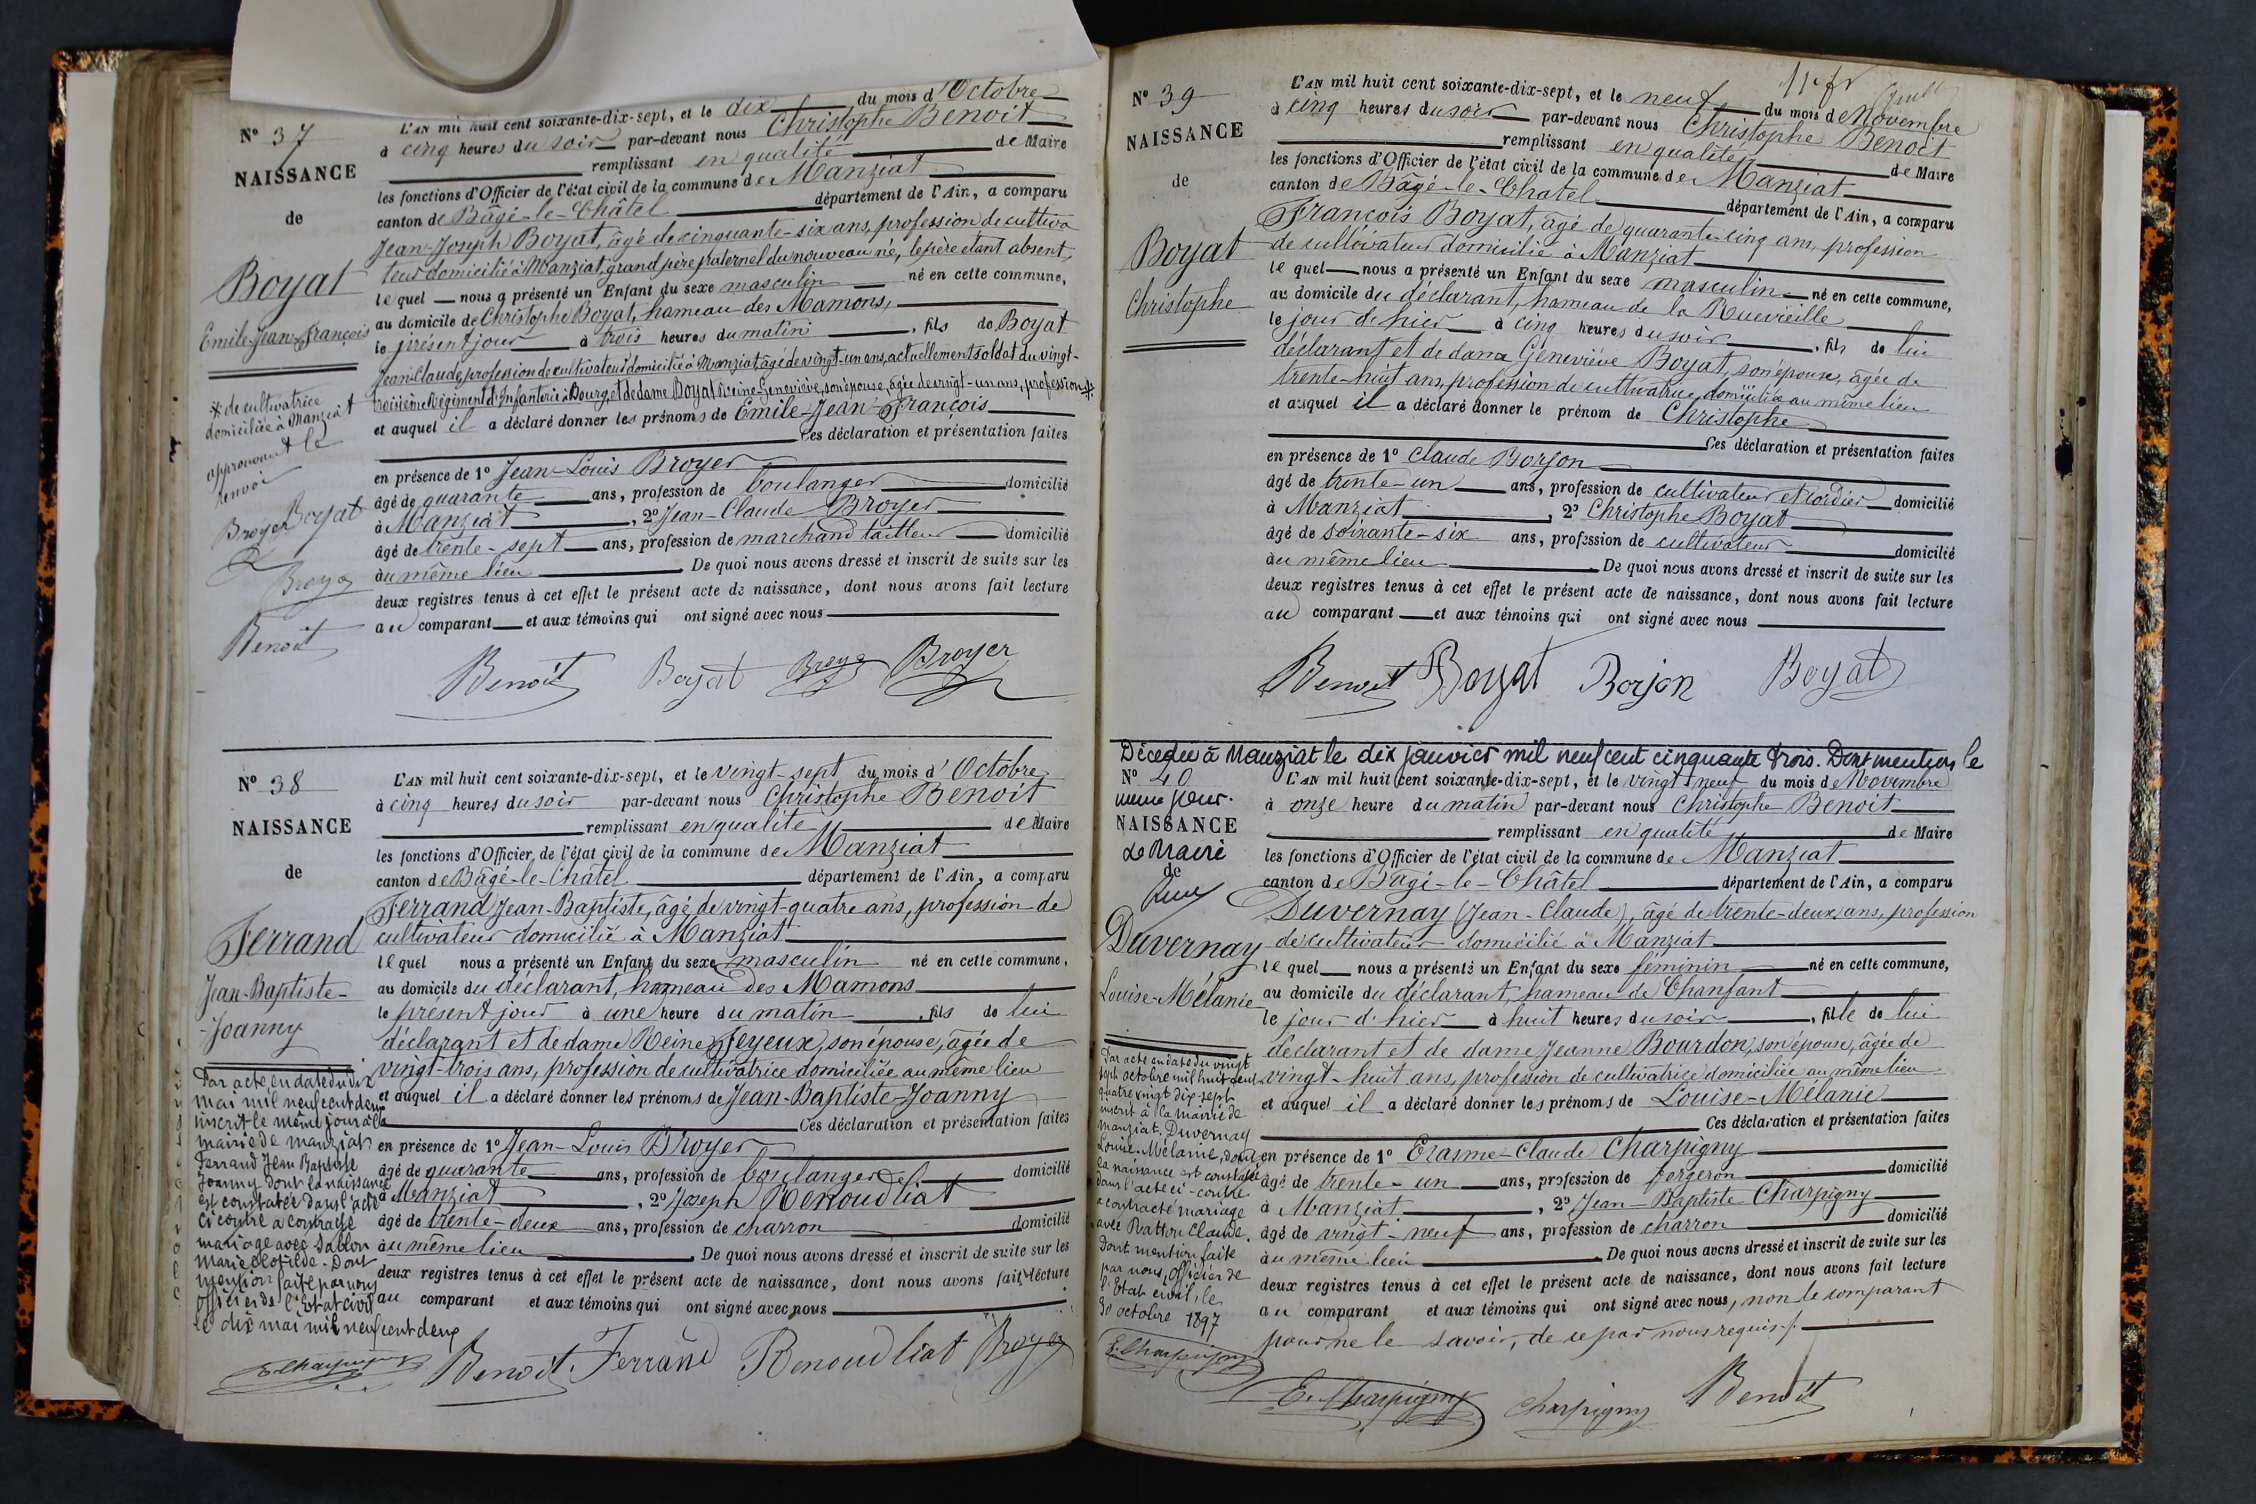 N° 37
NAISSANCE
de
Boyat
Emile-Jean-François
L'AN mil huit cent soixante-dix-sept, et le dix du mois d'Octobre
à cinq heures du soir par-devant nous Christophe Benoit
remplissant en qualité de Maire
les fonctions d'Officier de l'état civil de la commune de Manziat
canton de Bâgé-le-Châtel département de l'Ain, a comparu
Jean-Joseph Boyat, âgé de cinquante-six ans, profession de cultiva
teur domicilié à Manziat, grand père paternel du nouveau né, le père étant absent,
lequel nous a présenté un Enfant du sexe masculin né en cette commune,
au domicile de Christophe Boyat, hameau des Mamons,
le présent jour à trois heures du matin, fils de Boyat
Jean-Claude, profession de cultivateur domicilié à Manziat, âgé de vingt-un ans, actuellement soldat du vingt-
troisième Régiment d'Infanterie à Bourg, et de dame Boyat Reine-Geneviève, son épouse, âgée de vingt-un ans, profession *
et auquel il a déclaré donner les prénoms de Emile-Jean-François
Ces déclaration et présentation faites
en présence de 1° Jean-Louis Broyer
âgé de quarante ans, profession de boulanger domicilié
à Manziat, 2° Jean-Claude Broyer
âgé de trente-sept ans, profession de marchand tailleur domicilié
au même lieu De quoi nous avons dressé et inscrit de suite sur les
deux registres tenus à cet effet le présent acte de naissance, dont nous avons fait lecture
au comparant et aux témoins qui ont signé avec nous
* de cultivatrice
domiciliée à Manziat
approuvant le
renvoi
Broyer Boyat
Broyer
Benoit
Benoit Boyat Broyer Broyer
N° 38
NAISSANCE
de
Ferrand
Jean-Baptiste-
-Joanny
L'AN mil huit cent soixante-dix-sept, et le vingt-sept du mois d'Octobre
à cinq heures du soir par-devant nous Christophe Benoit
remplissant en qualité de Maire
les fonctions d'Officier de l'état civil de la commune de Manziat
canton de Bâgé-le-Châtel département de l'Ain, a comparu
Ferrand Jean-Baptiste, âgé de vingt-quatre ans, profession de
cultivateur domicilié à Manziat
lequel nous a présenté un Enfant du sexe masculin né en cette commune,
au domicile du déclarant, hameau des Mamons
le présent jour à une heure du matin, fils de lui
déclarant et de dame Reine Feyeux, son épouse, âgée de
vingt-trois ans, profession de cultivatrice domiciliée au même lieu
et auquel il a déclaré donner les prénoms de Jean-Baptiste-Joanny
Ces déclaration et présentation faites
en présence de 1° Jean-Louis Broyer
âgé de quarante ans, profession de boulanger domicilié
à Manziat, 2° Joseph Renoud liat
âgé de trente-deux ans, profession de charron domicilié
au même lieu De quoi nous avons dressé et inscrit de suite sur les
deux registres tenus à cet effet le présent acte de naissance, dont nous avons fait lecture
au comparant et aux témoins qui ont signé avec nous
Par acte en date du dix
mai mil neuf cent deux
inscrit le même jour à la
mairie de Manziat
Ferrand Jean Baptiste
Joanny dont la naissance
est constatée dans l'acte
ci contre a contracté
mariage avec Sablon
Marie Clotilde. Dont
mention faite par nous
officier de l'Etat civil
le dix mai mil neuf cent deux
E. Charpigny
Benoit Ferrand Renoud liat Broyer
N° 39
NAISSANCE
de
Boyat
Christophe
L'AN mil huit cent soixante-dix-sept, et le neuf du mois de Novembre
à cinq heures du soir par-devant nous Christophe Benoit
remplissant en qualité de Maire
les fonctions d'Officier de l'état civil de la commune de Manziat
canton de Bâgé-le-Chatel département de l'Ain, a comparu
François Boyat, âgé de quarante-cinq ans, profession
de cultivateur domicilié à Manziat
lequel nous a présenté un Enfant du sexe masculin né en cette commune,
au domicile du déclarant, hameau de la Ruevieille
le jour de hier à cinq heures du soir, fils de lui
déclarant et de dame Geneviève Boyat, son épouse, âgée de
trente-huit ans, profession de cultivatrice, domiciliée au même lieu
et auquel il a déclaré donner le prénom de Christophe
Ces déclaration et présentation faites
en présence de 1° Claude Borjon
âgé de trente-un ans, profession de cultivateur et cordier domicilié
à Manziat, 2° Christophe Boyat
âgé de soixante-six ans, profession de cultivateur domicilié
au même lieu De quoi nous avons dressé et inscrit de suite sur les
deux registres tenus à cet effet le présent acte de naissance, dont nous avons fait lecture
au comparant et aux témoins qui ont signé avec nous
Benoit Boyat Borjon Boyat
Décédée à Manziat le dix janvier mil neuf cent cinquante trois. Dont mention le
même jour.
Le Maire
N° 40
NAISSANCE
de
Duvernay
Louise-Mélanie
L'AN mil huit cent soixante-dix-sept, et le vingt neuf du mois de Novembre
à onze heure du matin par-devant nous Christophe Benoit
remplissant en qualité de Maire
les fonctions d'Officier de l'état civil de la commune de Manziat
canton de Bâgé-le-Châtel département de l'Ain, a comparu
Duvernay (Jean-Claude), âgé de trente-deux ans, profession
de cultivateur domicilié à Manziat
lequel nous a présenté un Enfant du sexe féminin né en cette commune,
au domicile du déclarant, hameau de Chanfant
le jour d'hier à huit heures du soir, fille de lui
déclarant et de dame Jeanne Bourdon, son épouse, âgée de
vingt-huit ans, profession de cultivatrice domiciliée au même lieu
et auquel il a déclaré donner les prénoms de Louise-Mélanie
Ces déclaration et présentation faites
en présence de 1° Erasme-Claude Charpigny
âgé de trente-un ans, profession de forgeron domicilié
à Manziat, 2° Jean-Baptiste Charpigny
âgé de vingt-neuf ans, profession de charron domicilié
au même lieu De quoi nous avons dressé et inscrit de suite sur les
deux registres tenus à cet effet le présent acte de naissance, dont nous avons fait lecture
au comparant et aux témoins qui ont signé avec nous, non le comparant
pour ne le savoir, de ce par nous requis
Par acte en date du vingt
sept octobre mil huit cent
quatre vingt dix sept
inscrit à la mairie de
Manziat, Duvernay
Louise Mélanie, dont
la naissance est constatée
dans l'acte ci-contre
a contracté mariage
avec Ratton Claude.
Dont mention faite
par nous, officier de
l'Etat civil, le
30 octobre 1897
E. Charpigny
E. Charpigny Charpigny Benoit